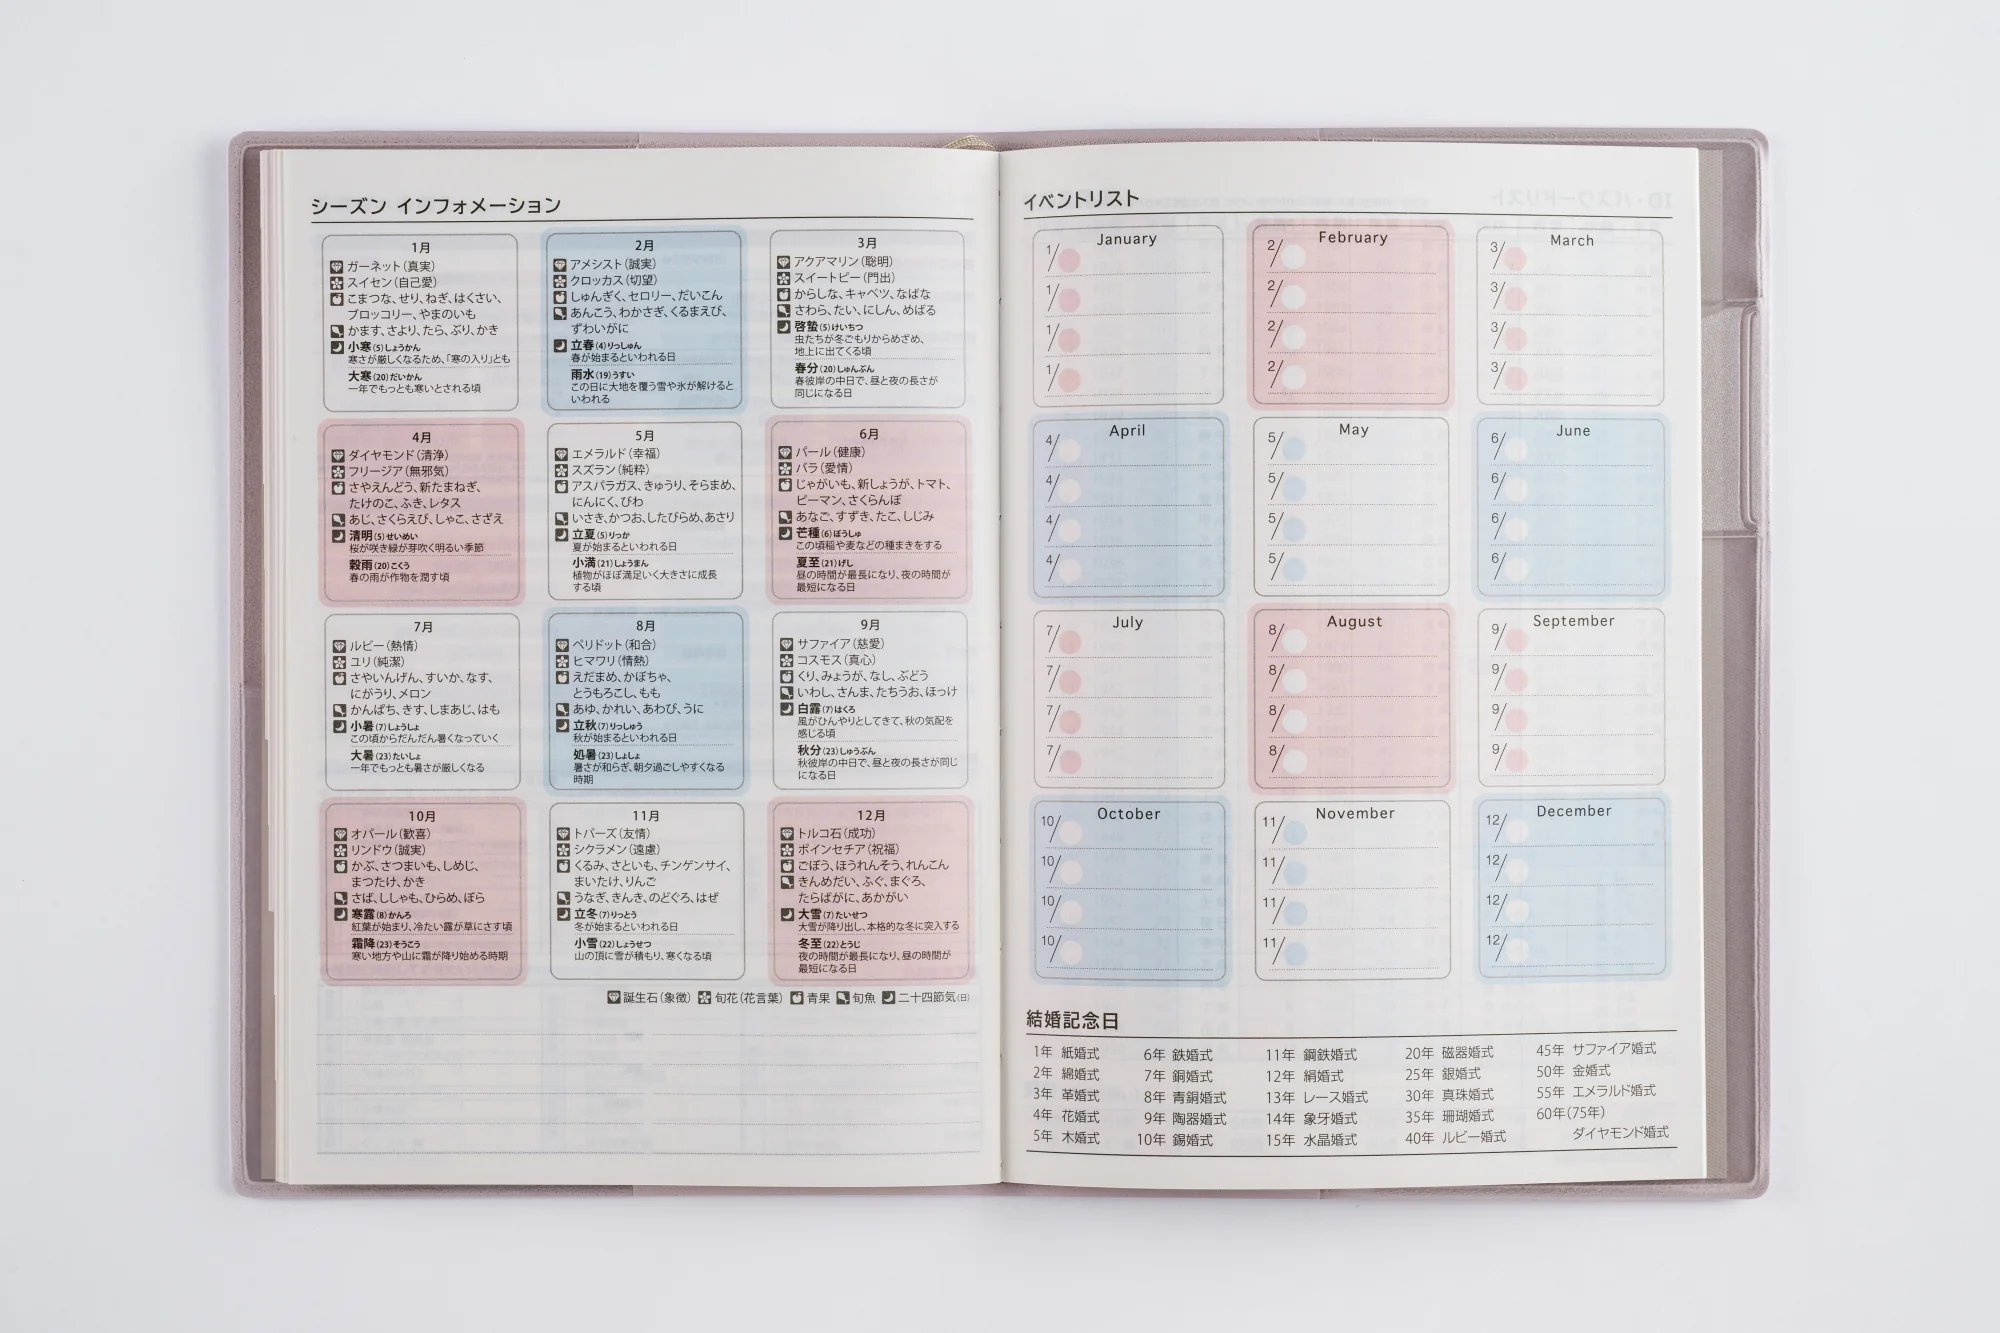 シーズン インフォメーション
1月
ガーネット（真実）
スイセン（自己愛）
こまつな、せり、ねぎ、はくさい、
ブロッコリー、やまのいも
かます、さより、たら、ぶり、かき
小寒(5)しょうかん
寒さが厳しくなるため、「寒の入り」とも
大寒(20)だいかん
一年でもっとも寒いとされる頃
2月
アメシスト（誠実）
クロッカス（切望）
しゅんぎく、セロリー、だいこん
あんこう、わかさぎ、くるまえび、
ずわいがに
立春(4)りっしゅん
春が始まるといわれる日
雨水(19)うすい
この日に大地を覆う雪や氷が解けると
いわれる
3月
アクアマリン（聡明）
スイートピー（門出）
からしな、キャベツ、なばな
さわら、たい、にしん、めばる
啓蟄(5)けいちつ
虫たちが冬ごもりからめざめ、
地上に出てくる頃
春分(20)しゅんぶん
春彼岸の中日で、昼と夜の長さが
同じになる日
4月
ダイヤモンド（清浄）
フリージア（無邪気）
さやえんどう、新たまねぎ、
たけのこ、ふき、レタス
あじ、さくらえび、しゃこ、さざえ
清明(5)せいめい
桜が咲き緑が芽吹く明るい季節
穀雨(20)こくう
春の雨が作物を潤す頃
5月
エメラルド（幸福）
スズラン（純粋）
アスパラガス、きゅうり、そらまめ、
にんにく、びわ
いさき、かつお、したびらめ、あさり
立夏(5)りっか
夏が始まるといわれる日
小満(21)しょうまん
植物がほぼ満足いく大きさに成長
する頃
6月
パール（健康）
バラ（愛情）
じゃがいも、新しょうが、トマト、
ピーマン、さくらんぼ
あなご、すずき、たこ、しじみ
芒種(6)ぼうしゅ
この頃稲や麦などの種まきをする
夏至(21)げし
昼の時間が最長になり、夜の時間が
最短になる日
7月
ルビー（熱情）
ユリ（純潔）
さやいんげん、すいか、なす、
にがうり、メロン
かんぱち、きす、しまあじ、はも
小暑(7)しょうしょ
この頃からだんだん暑くなっていく
大暑(23)たいしょ
一年でもっとも暑さが厳しくなる
8月
ペリドット（和合）
ヒマワリ（情熱）
えだまめ、かぼちゃ、
とうもろこし、もも
あゆ、かれい、あわび、うに
立秋(7)りっしゅう
秋が始まるといわれる日
処暑(23)しょしょ
暑さが和らぎ、朝夕過ごしやすくなる
時期
9月
サファイア（慈愛）
コスモス（真心）
くり、みょうが、なし、ぶどう
いわし、さんま、たちうお、ほっけ
白露(7)はくろ
風がひんやりとしてきて、秋の気配を
感じる頃
秋分(23)しゅうぶん
秋彼岸の中日で、昼と夜の長さが同じ
になる日
10月
オパール（歓喜）
リンドウ（誠実）
かぶ、さつまいも、しめじ、
まつたけ、かき
さば、ししゃも、ひらめ、ぼら
寒露(8)かんろ
紅葉が始まり、冷たい露が草にさす頃
霜降(23)そうこう
寒い地方や山に霜が降り始める時期
11月
トパーズ（友情）
シクラメン（遠慮）
くるみ、さといも、チンゲンサイ、
まいたけ、りんご
うなぎ、きんき、のどぐろ、はぜ
立冬(7)りっとう
冬が始まるといわれる日
小雪(22)しょうせつ
山の頂に雪が積もり、寒くなる頃
12月
トルコ石（成功）
ポインセチア（祝福）
ごぼう、ほうれんそう、れんこん
きんめだい、ふぐ、まぐろ、
たらばがに、あかがい
大雪(7)たいせつ
大雪が降り出し、本格的な冬に突入する
冬至(22)とうじ
夜の時間が最長になり、昼の時間が
最短になる日
誕生石（象徴） 旬花（花言葉） 青果 旬魚 二十四節気(日)
イベントリスト
January
1/
1/
1/
1/
February
2/
2/
2/
2/
March
3/
3/
3/
3/
April
4/
4/
4/
4/
May
5/
5/
5/
5/
June
6/
6/
6/
6/
July
7/
7/
7/
7/
August
8/
8/
8/
8/
September
9/
9/
9/
9/
October
10/
10/
10/
10/
November
11/
11/
11/
11/
December
12/
12/
12/
12/
結婚記念日
1年 紙婚式
2年 綿婚式
3年 革婚式
4年 花婚式
5年 木婚式
6年 鉄婚式
7年 銅婚式
8年 青銅婚式
9年 陶器婚式
10年 錫婚式
11年 鋼鉄婚式
12年 絹婚式
13年 レース婚式
14年 象牙婚式
15年 水晶婚式
20年 磁器婚式
25年 銀婚式
30年 真珠婚式
35年 珊瑚婚式
40年 ルビー婚式
45年 サファイア婚式
50年 金婚式
55年 エメラルド婚式
60年（75年）
ダイヤモンド婚式